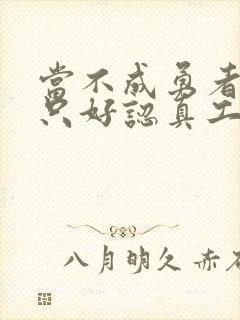 當不成勇者
只好認真工
八月明久 赤石